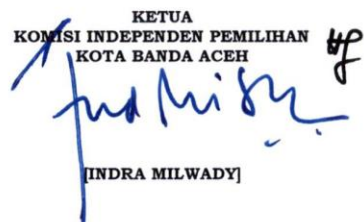 KETUA
KOMISI INDEPENDEN PEMILIHAN
KOTA BANDA ACEH
[INDRA MILWADY]